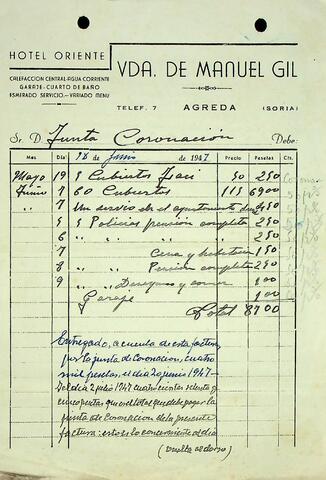 HOTEL ORIENTE
CALEFACCION CENTRAL-AGUA CORRIENTE
GARAJE-CUARTO DE BAÑO
ESMERADO SERVICIO-VARIADO MENU
VDA. DE MANUEL GIL
TELEF. 7 AGREDA (SORIA)
Sr. D. Junta Coronación Debe:
Mes Día 18 de Junio de 1947 Precio Pesetas Cts.
Mayo 19 5 Cubiertos 50 250
Junio 7 60 Cubertos 115 6900
" 7 Un servicio en el apartamento
5 5 Policías pensión completa 250
6 " " " " 250
7 Cena y habitación 150
8 " " Pension completa 250
9 " " Desayuno y comer
Garaje 100
Total 8700
Entregado, a cuenta de esta factura,
por la junta de Coronacion, cuatro
mil pesetas, el dia 20 junio 1947-
del dia 2 julio 1947 cuatrocientas setenta y
cinco pesetas que es el total que debe pagar la
junta de Coronacion de la presente
factura: esto es lo concerniente al dia
(vuelta al dorso)